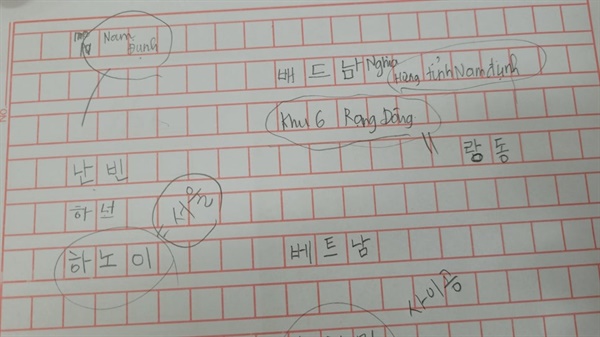 Nam
Định
배드남 Nghĩa
Hưng tỉnh Nam định
Khu 6 Rạng Đông
" 랑동
난빈
하넌
서울
하노이
베트남
사이공